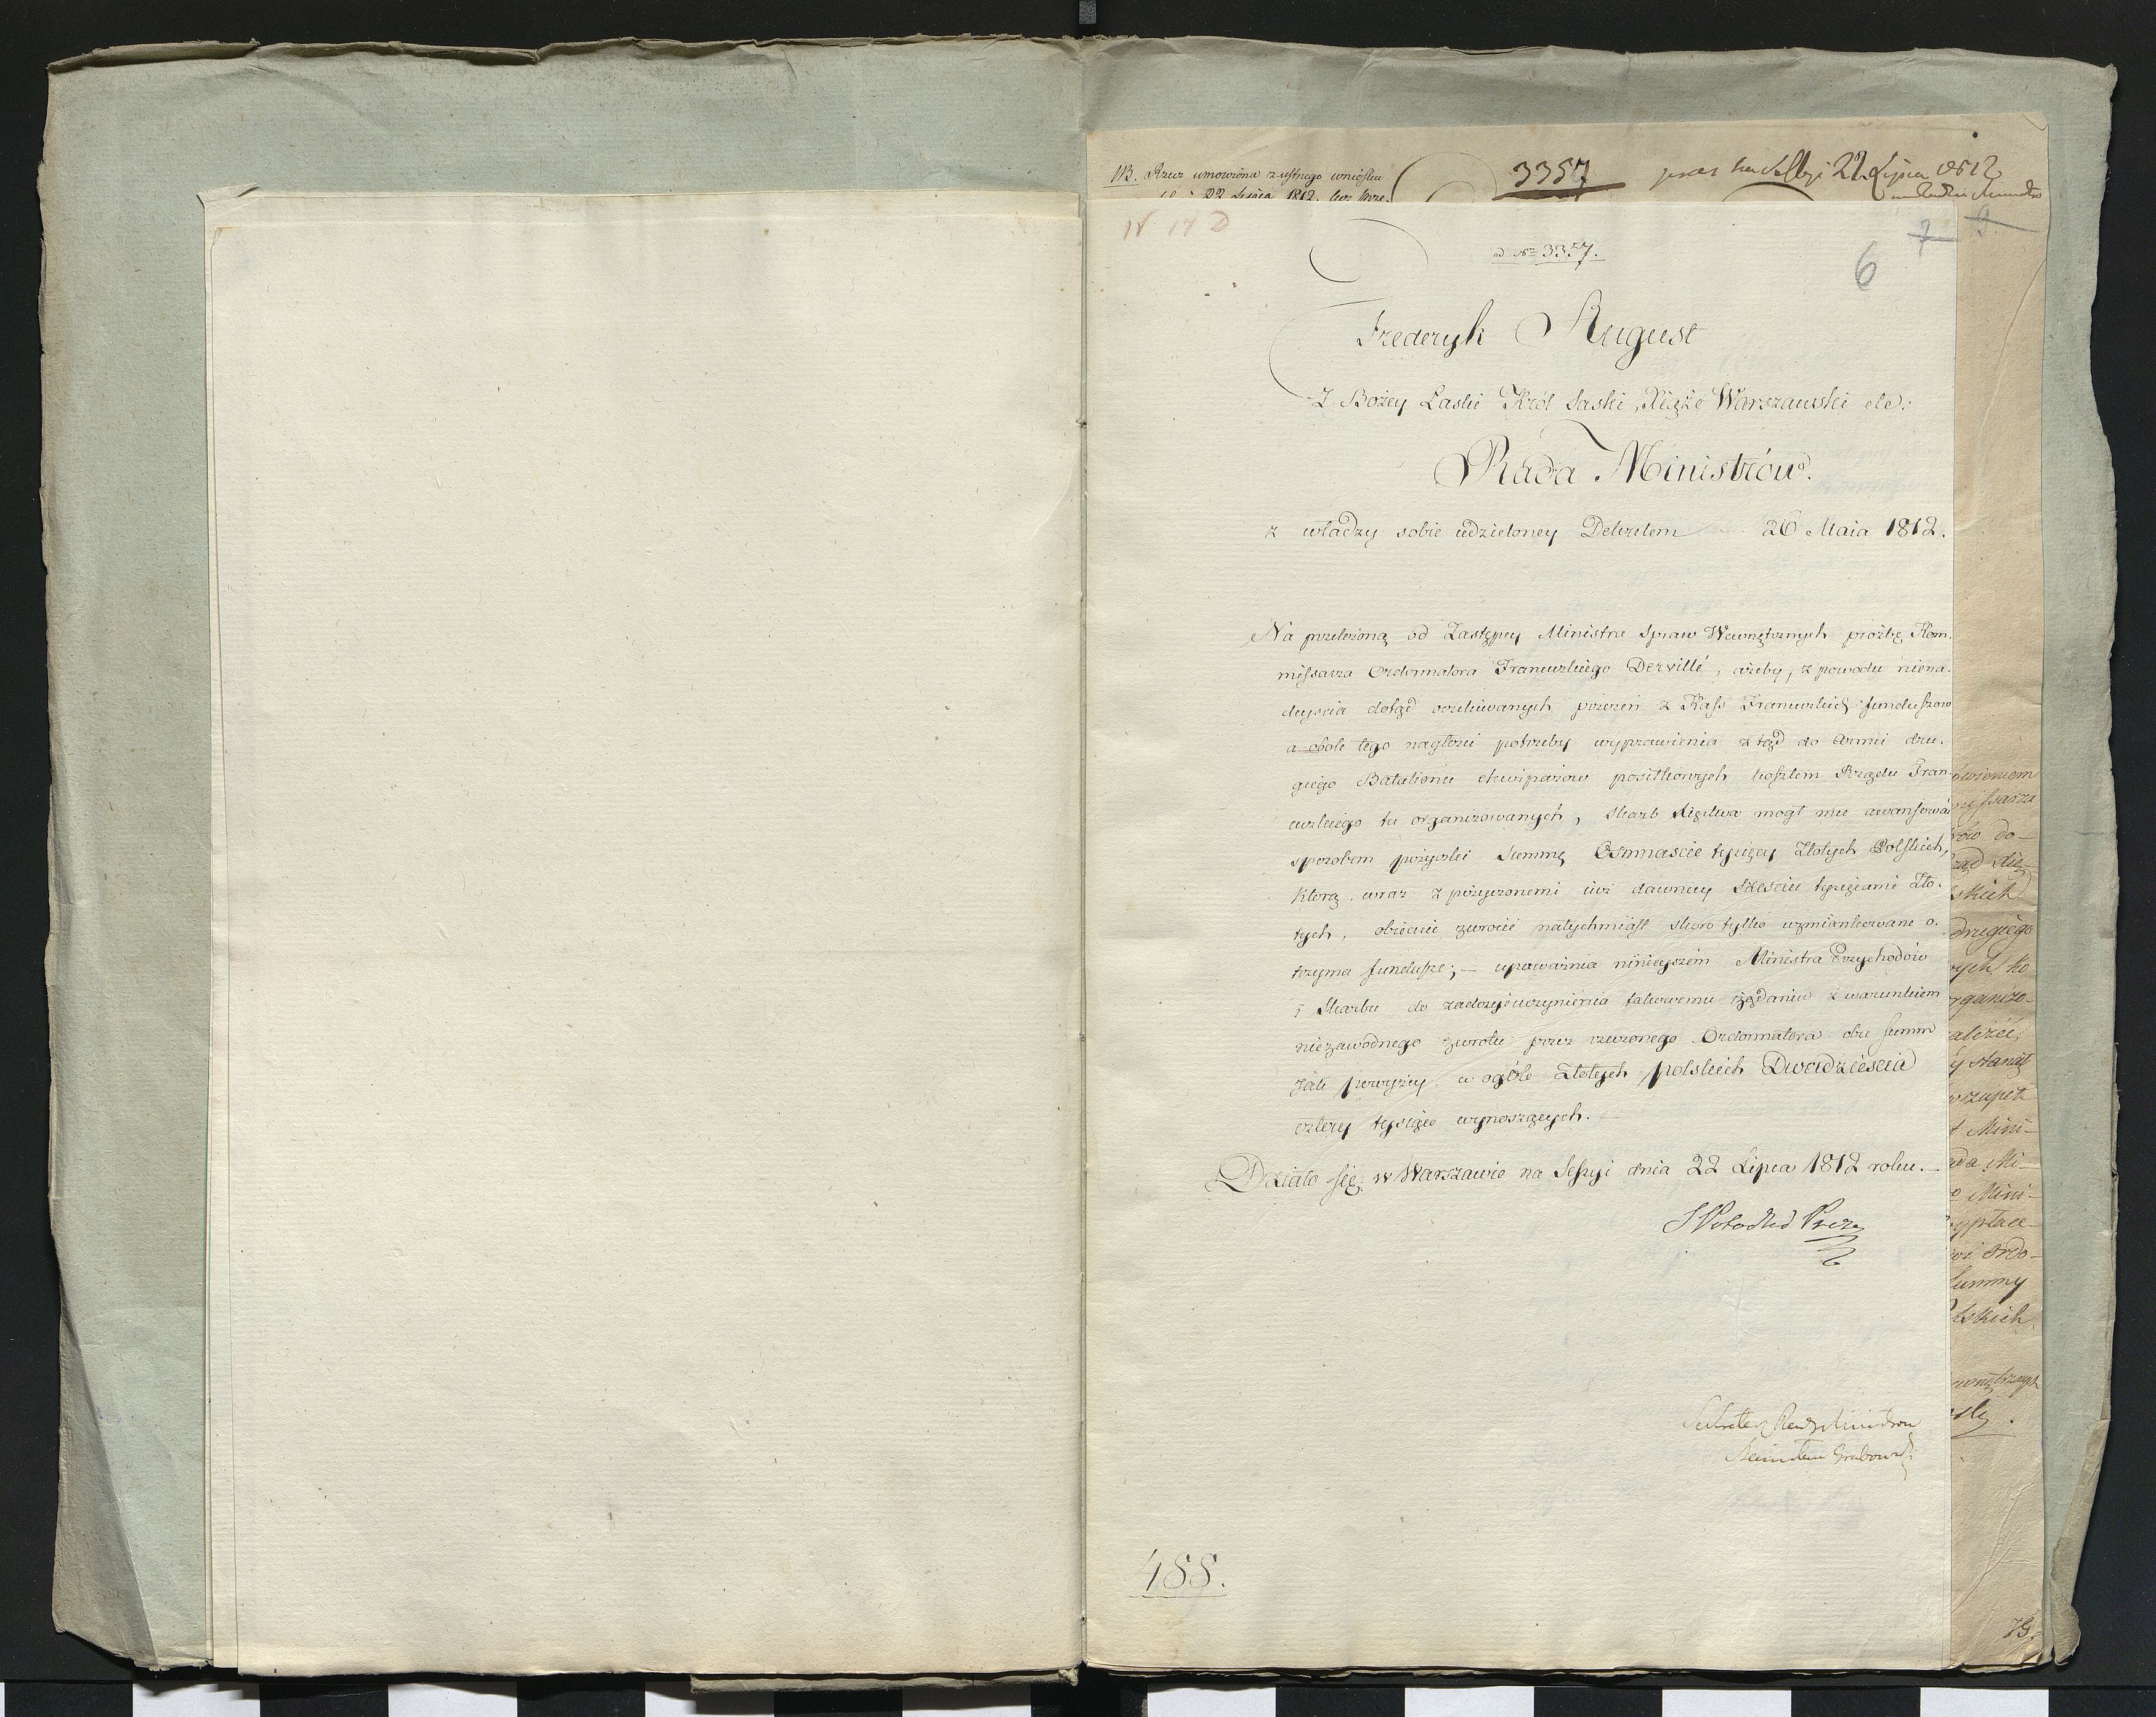 NB. Rzecz umowiona z ustnego wniosku
22 Lipca 1812.
3357
22 Lipca 1812
N 17 D
ad No 3357.
7
9
6
Frederyk August
Z Bożey Łaski Król Saski, Xiąże Warszawski etc:
Rada Ministrów.
z władzy sobie udzieloney Dekretem 26 Maia 1812.
Na przełożoną od Zastępcy Ministra Spraw Wewnętrznych prożbę Kom-
missarza Ordonnatora Francuzkiego Dervillé, ażeby, z powodu niena-
deyscia dotąd oczekiwanych przezeń z Kass Francuzkich funduszow
a obok tego nagłości potrzeby wyprawienia ztąd do Armii dru-
giego Batalionu ekwipażow posiłkowych kosztem Rządu Fran-
cuzkiego tu organizowanych, Skarb Xięstwa mogł mu awansować
sposobem pożyczki Summę Osmnascie tysięcy Złotych Polskich,
ktorą wraz z pożyczonemi iuż dawniey Sześciu tysiącami Zło-
tych, obiecuie zwrocić natychmiast skoro tylko wzmiankowane o-
trzyma fundusze; – upoważnia ninieyszém Ministra Przychodów
i Skarbu do zadosyćuczynienia takowemu żądaniu z warunkiem
niezawodnego zwrotu przez rzeczonego Ordonnatora obu Summ
jak powyżey w ogóle Złotych polskich Dwadzieścia
cztery tysiące wynoszących.
Działo się w Warszawie na Sessyi dnia 22 Lipca 1812 roku.
Sekretarz Rady Ministrow
Grabowski
488.
ówieniem
missarza
do-
skich
drugiego
rych ko
rganizo-
ależeć
y stanął
w zupeł
Mini-
ada Mi-
Mini-
ypłace-
Ordo-
Summy
lskich
wnętrznych
79.